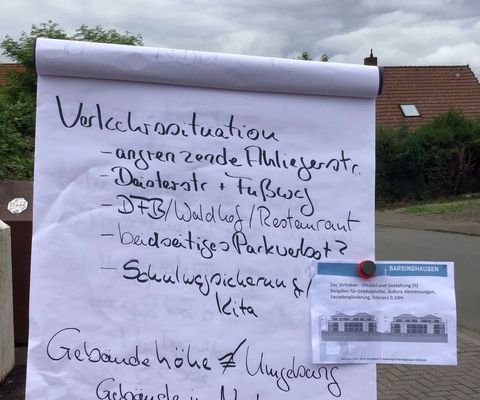 Verkehrssituation
- angrenzende Anliegerstr.
- Deisterstr + Fußweg
- DFB/Waldhof/Restaurant
- beidseitiges Parkverbot?
- Schulwegsicherung/
Kita
Gebäudehöhe ≠ Umgebung
BARSINGHAUSEN
Das Vorhaben - Ortsbild und Gestaltung (II)
Vorgaben für Gebäudehöhe, äußere Abmessungen,
Fassadengliederung, Toleranz 0,10m